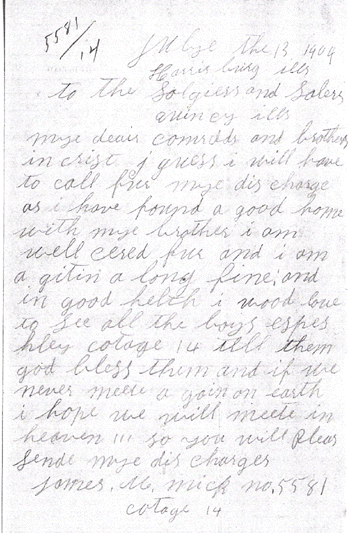 5581/14
July the 13 1904
Harrisburg ills
to the Solgiess and Solers
quincy ills
mye deair comrdds and brothers
in crist j guess i will have
to call fur mye dis charge
as i have found a good home
with mye brother i am
well cered fur and i am
a gitin a long fine; and
in good helth i wood love
to see all the boys espes
hley cotage 14 till them
god bless them and if we
never meete a goin on earth
i hope we will meete in
heaven !!! so you will pleas
sende mye dis charges
James. M. mick no. 5581
cotage 14